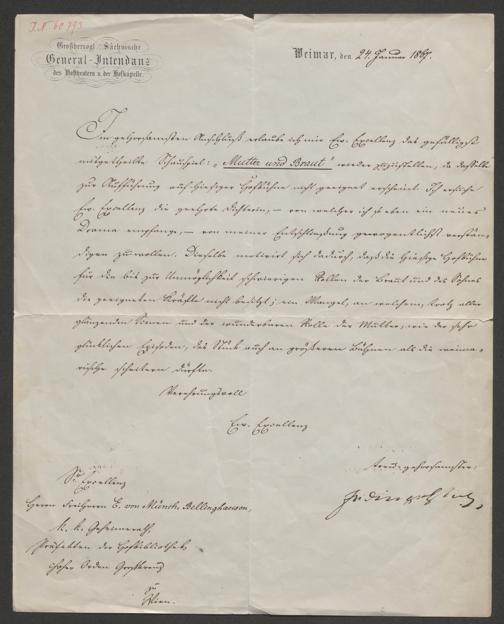 J.N. 60793
Großherzogl. Sächsische
General-Intendanz
des Hoftheaters u. der Hofkapelle.
Weimar, den 24. Januar 1865.
Im gehorsamsten Anschluß erlaube ich mir Ew. Excellenz das gefälligst
mitgetheilte Schauspiel: „Mutter und Braut“ wieder zuzustellen, da dasselbe
zur Aufführung auf hiesiger Hofbühne nicht geeignet erscheint. Ich ersuche
Ew. Excellenz die geehrte Dichterin, – von welcher ich so eben ein neues
Drama empfange, – von meiner Entschließung gewogentlichst verstän-
digen zu wollen. Dieselbe motivirt sich dadurch, daß die hiesige Hofbühne
für die bis zur Unmöglichkeit schwierigen Rollen der Braut und des Sohnes
die geeigneten Kräfte nicht besitzt; ein Mangel, an welchem, trotz aller
glänzenden Scenen und der wunderbaren Rolle der Mutter, wie der sehr
glücklichen Episoden, das Stück auch an größeren Bühnen als die weima-
rische scheitern dürfte.
Verehrungsvoll
Ew. Excellenz
treu-gehorsamster
Dingelstedt
Sr. Excellenz
Herrn Freiherrn E. von Münch-Bellinghausen,
K. K. Geheimerath,
Präfekten der Hofbibliothek,
hoher Orden Großkreuz
zu
Wien.